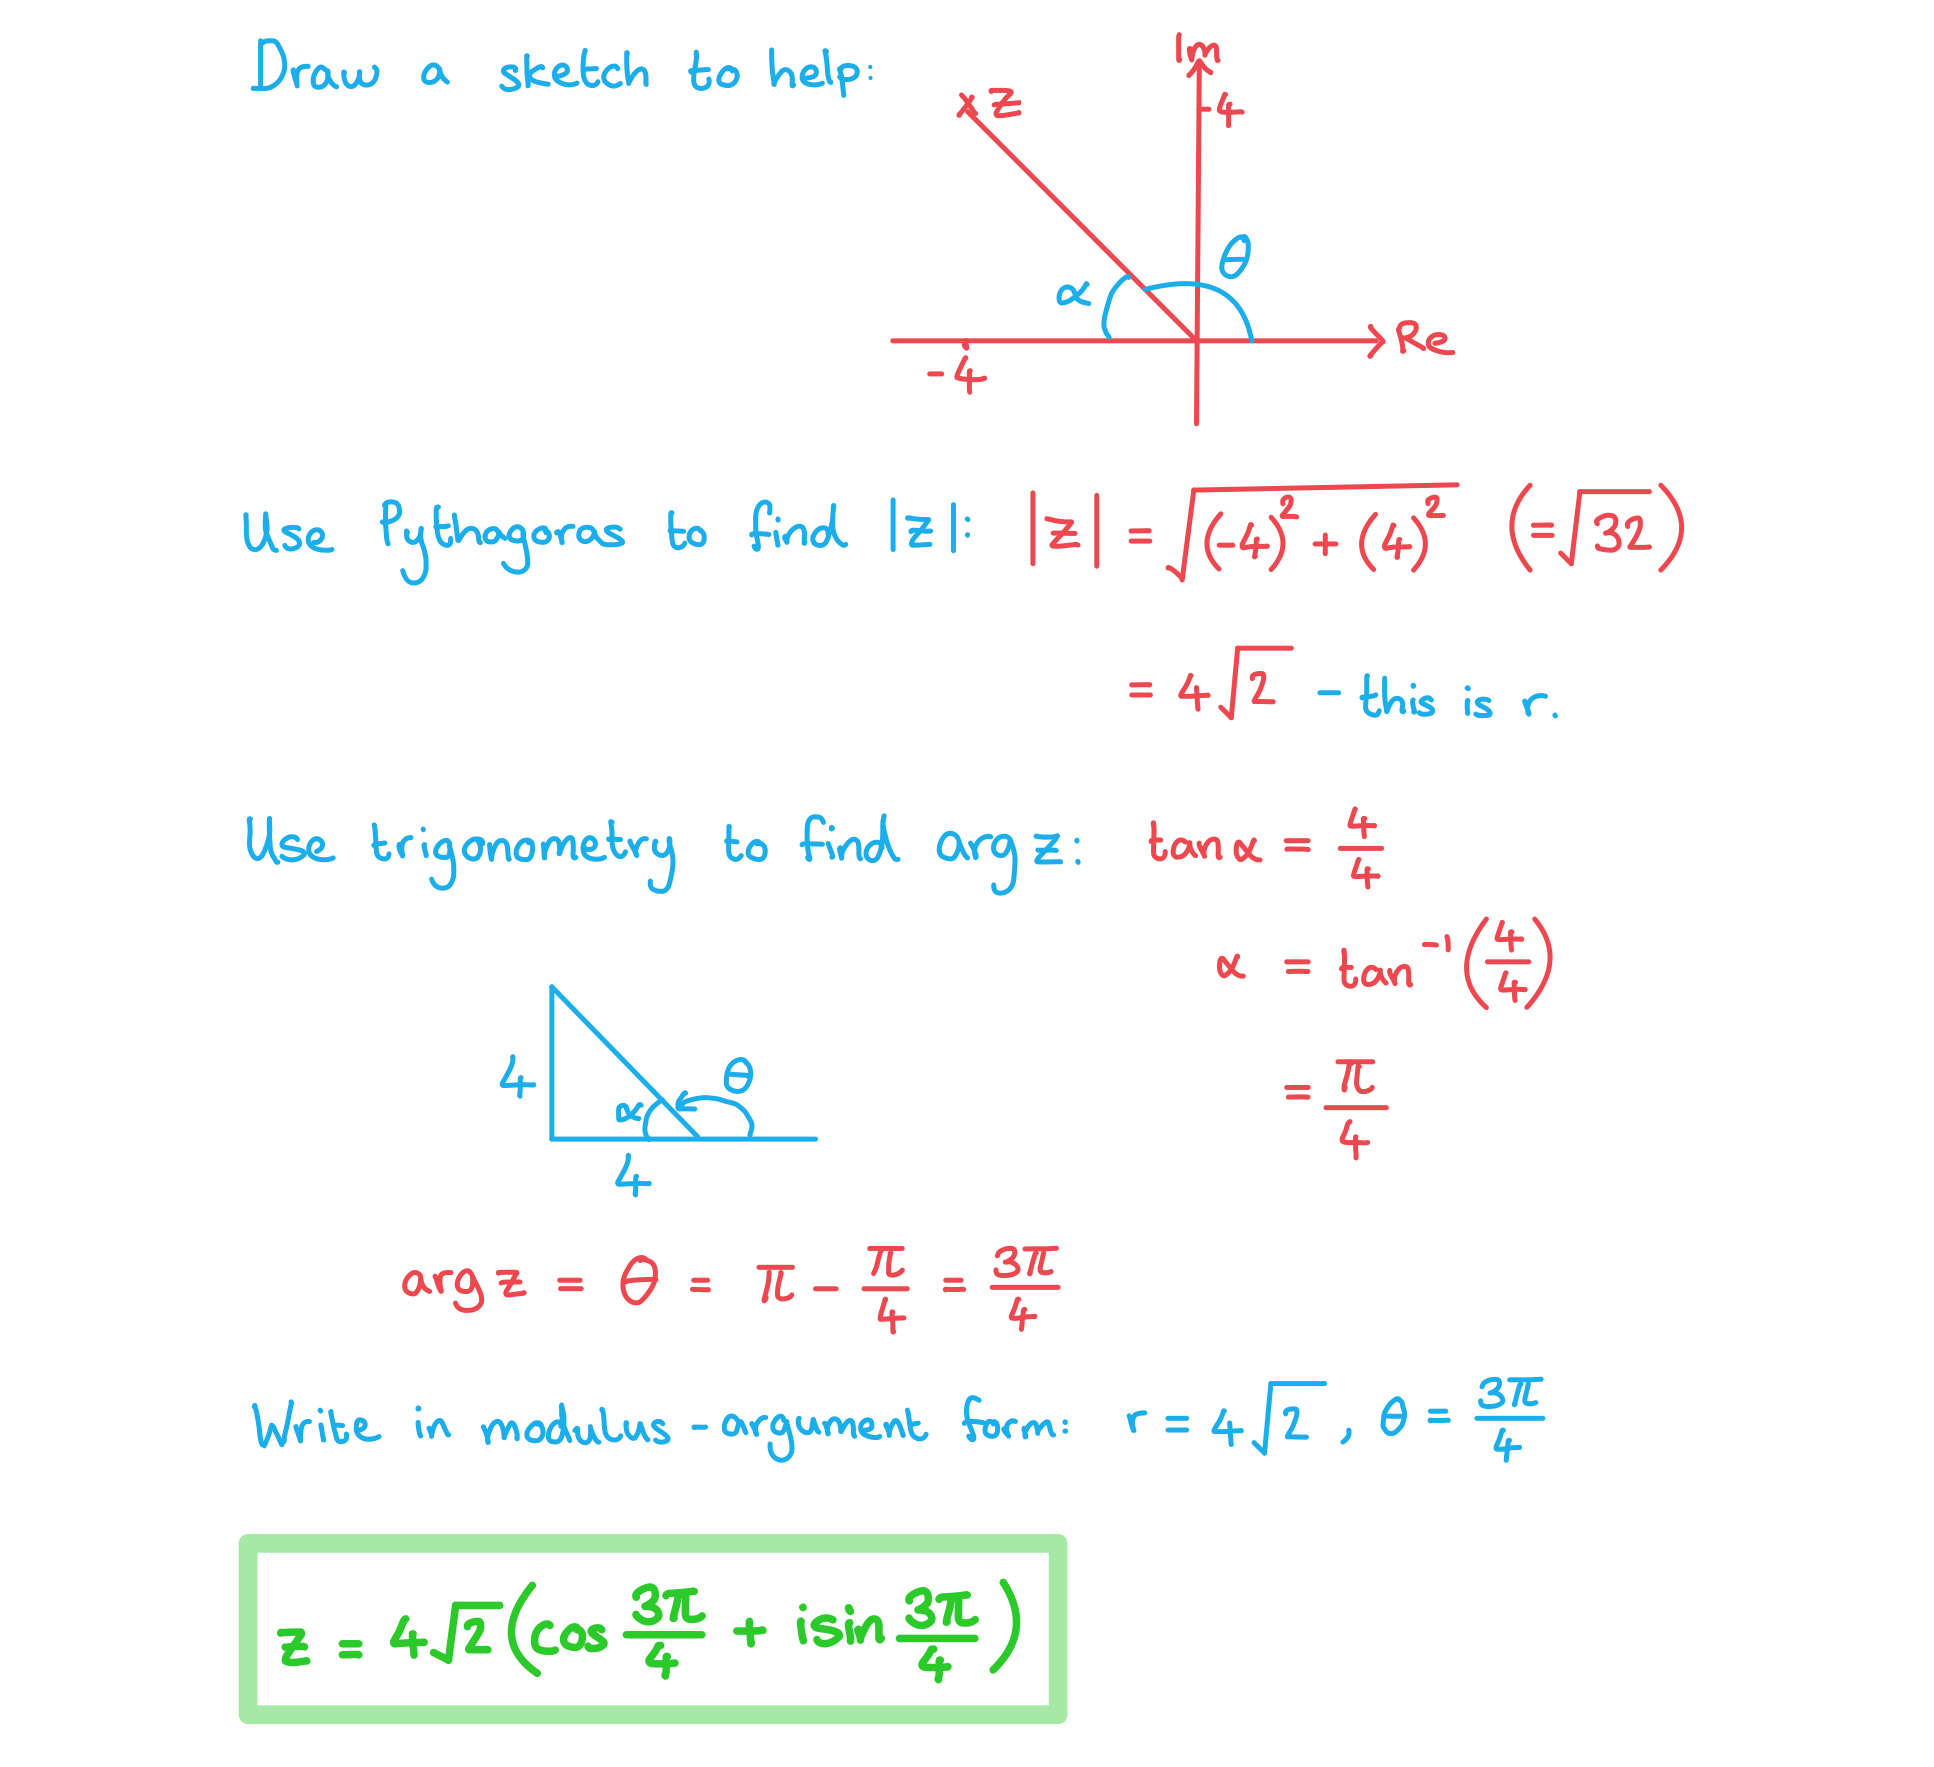 Draw a sketch to help:
Im
4
z
θ
α
Re
-4
Use Pythagoras to find |z|: |z| = √((-4)² + (4)²) (=√32)
= 4√2 - this is r.
Use trigonometry to find arg z: tan α = 4/4
α = tan⁻¹(4/4)
= π/4
4
α
θ
4
arg z = θ = π - π/4 = 3π/4
Write in modulus-argument form: r = 4√2, θ = 3π/4
z = 4√2(cos 3π/4 + isin 3π/4)